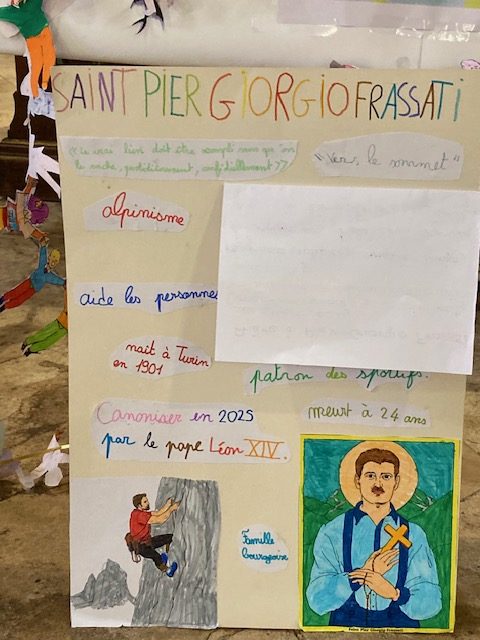 SAINT PIER GIORGIO FRASSATI
<< Le vrai bien doit être accompli sans que l'on
le sache, quotidiennement, confidentiellement >>
"Vers le sommet"
alpinisme
aide les personnes
nait à Turin
en 1901
patron des sportifs.
Canoniser en 2025
par le pape Léon XIV.
meurt à 24 ans
Famille
bourgeoise